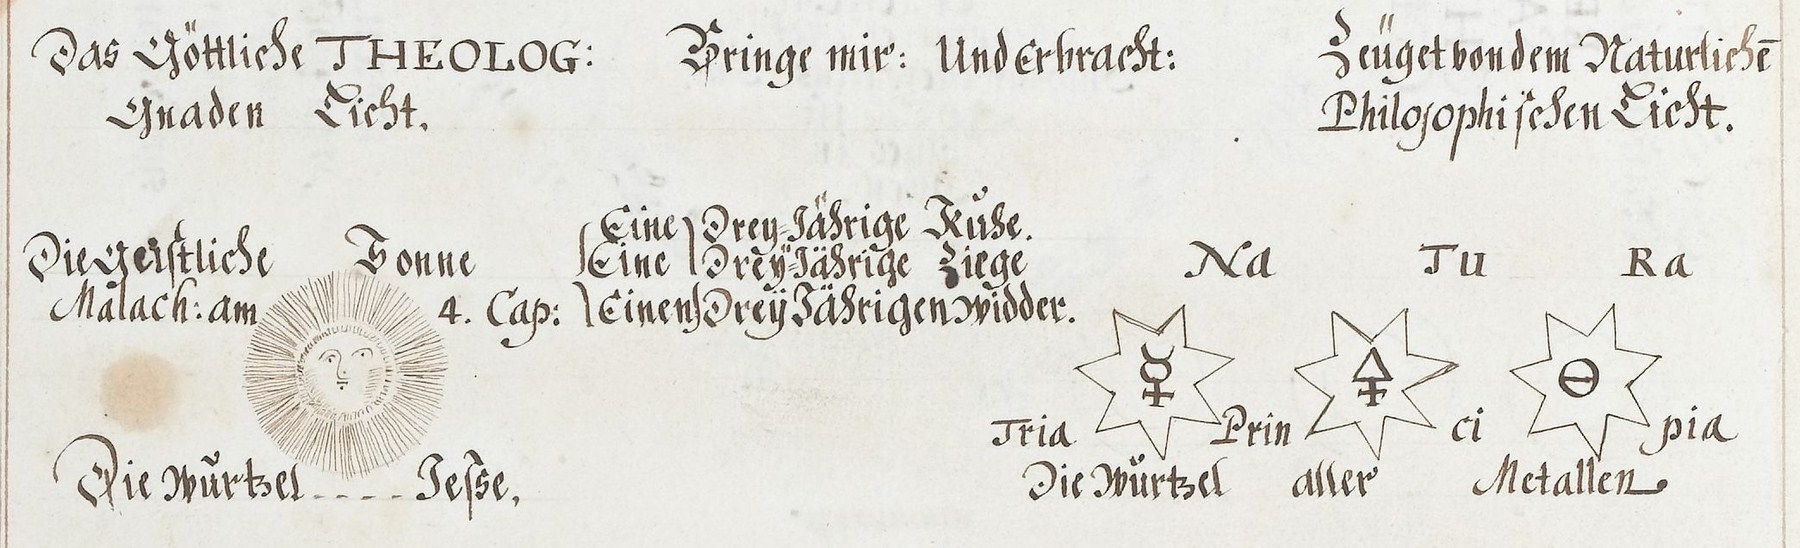 Das Göttliche THEOLOG: Bringe mir: Und Erbracht: Zeüget von dem Naturlichē
Gnaden Licht. Philosophischen Licht.
Eine Drey-Jährige Kŭhe.
Die Geistliche Sonne Eine Dreÿ-Jährige Ziege Na Tu Ra
Malach: am 4. Cap: Einen Dreÿ Jährigen widder.
☿ 🜍 🜔
Tria Prin ci pia
Die Wŭrtzel .... Jesse, Die Wŭrtzel aller Metallen